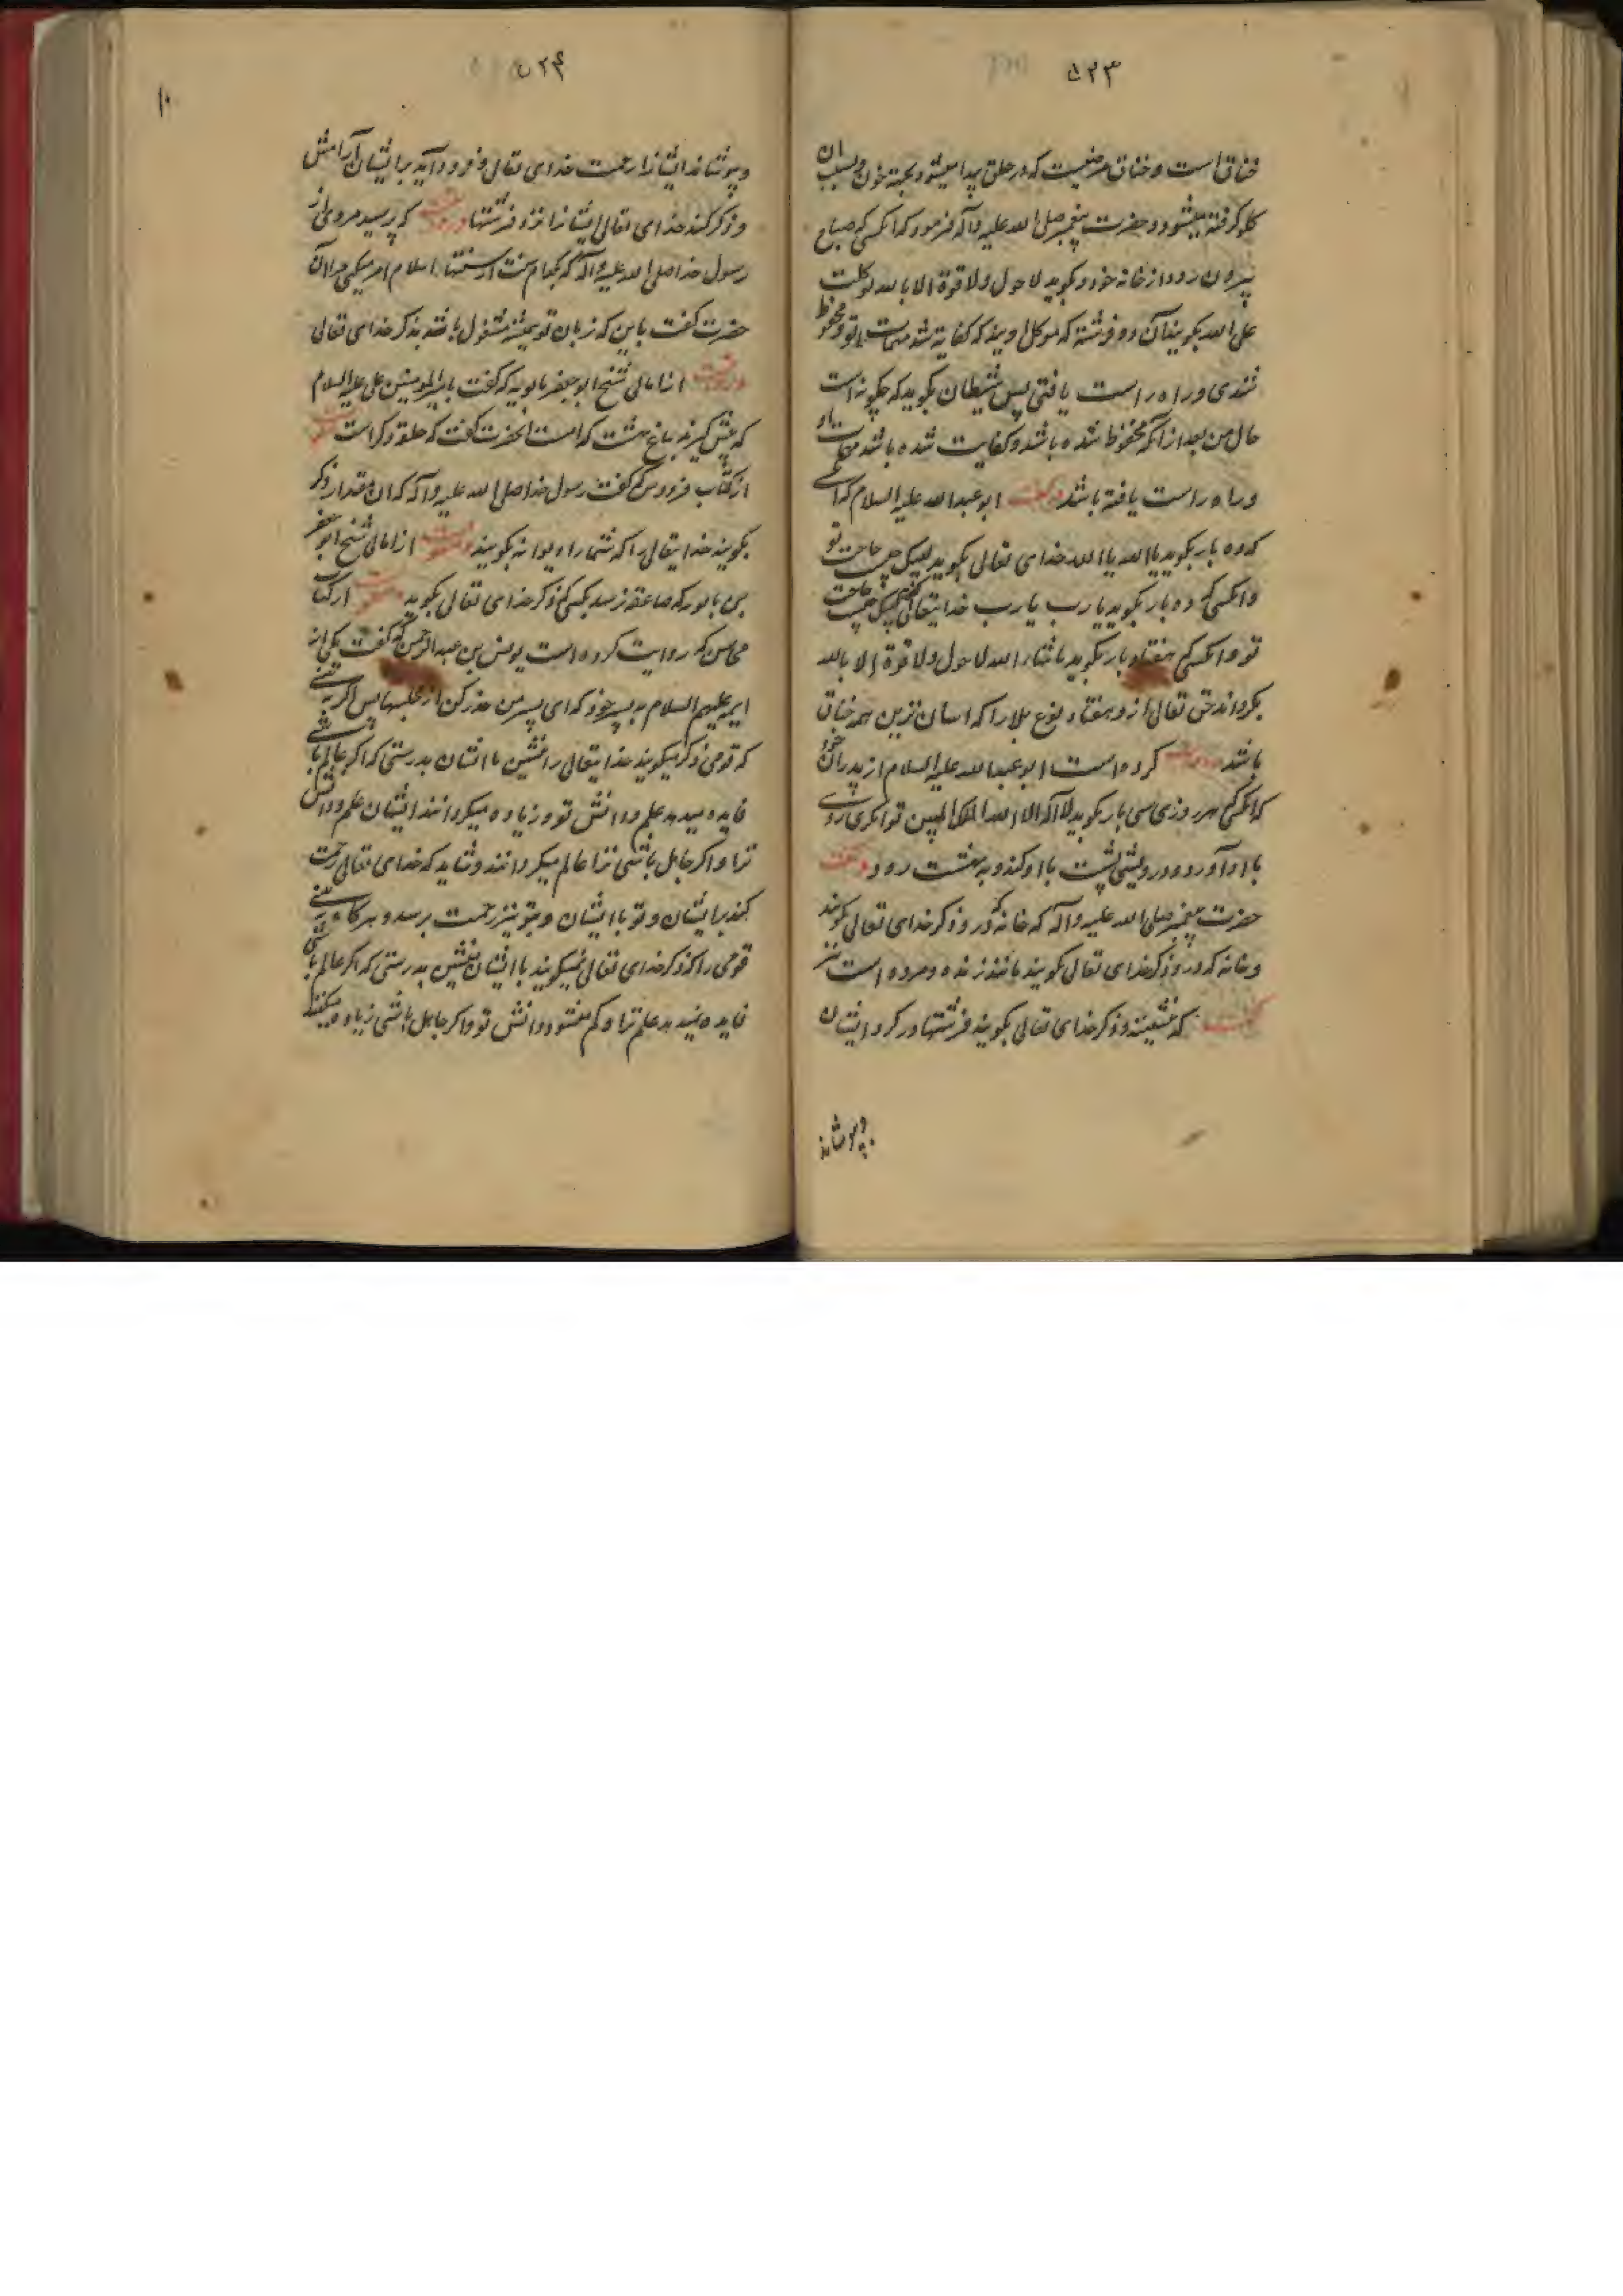 ۵۲۳
خناق است و خناق مرضیست که در حلق پیدا میشود بجهة خون و بسبب ان
کلو کرفته میشود و حضرت پیغمبر صلی الله علیه و آله فرمود که انکسی که صباح
بیرون رود از خانه خود و بکوید لا حول ولا قوة الا بالله توکلت
علی الله بکویند آن دو فرشته که موکل اویند که کفایة شد مهمات تو و محفوظ
شدی و راه راست یافتی پس شیطان بکوید که چکونه است
حال من بعد از آنکه محفوظ شده باشد و کفایت شده باشد مهمات او
و راه راست یافته باشد و گفت ابو عبدالله علیه السلام که انکسی
که ده بار بکوید یا الله یا الله خدای تعالی بکوید لبیک چیست حاجت تو
و انکسی که ده بار بکوید یا رب یا رب خدایتعالی بکوید لبیک چیست حاجت
تو و انکسی که هفتاد بار بکوید ما شاء الله لا حول ولا قوة الا بالله
بکرداند حق تعالی از و هفتاد نوع بلا را که اسان ترین همه خناق
باشد و روایت کرده است ابو عبدالله علیه السلام از پدران خود
که انکسی که هر روزی سی بار بکوید لا اله الا الله الملک المبین توانکری روی
با او آورد و درویشی پشت با او کند و به بهشت رود و گفت
حضرت پیغمبر صلی الله علیه و آله که خانه که در و ذکر خدای تعالی کویند
و خانه که در و ذکر خدای تعالی نکویند مانند زنده و مرده است نیز
که نشینند و ذکر خدای تعالی بکویند فرشتها در کرد ایشان
و بپوشاند
۵۲۴
و بپوشاند ایشانرا رحمت خدای تعالی و فرود آید بر ایشان آرامش
و ذکر کند خدای تعالی ایشانرا نزد فرشتها که پرسید مردی از
رسول خدا صلی الله علیه و آله که بکدام سنت از سنتهاء اسلام امر میکنی مرا آن
حضرت کفت باین که زبان تو همیشه مشغول باشد بذکر خدای تعالی
از امالی شیخ ابو جعفر بابویه که کفت امیر المومنین علی علیه السلام
که پیش کیرید باغ بهشت کدامست انحضرت کفت که حلقه ذکر است
از کتاب فردوس که کفت رسول خدا صلی الله علیه و آله که ان مقدار ذکر
بکویید خدایتعالی را که شما را دیوانه بکویند از امالی شیخ ابو جعفر
بن بابویه که صاعقه نرسد بکسی که ذکر خدای تعالی بکوید از کتاب
محاسن که روایت کرده است یونس بن عبدالرحمن که کفت یکی از
ایمه علیهم السلام به پسر خود که ای پسر من حذر کن از مجلسها پس اکر بینی
که قومی ذکر میکویند خدایتعالی را بنشین با ایشان بدرستی که اکر عالم باشی
فایده میدهد علم و دانش تو و زیاده میکردانند ایشان علم و دانش
ترا و اکر جاهل باشی ترا عالم میکردانند و شاید که خدای تعالی رحمت
کند بر ایشان و تو با ایشان و بتو نیز رحمت برسد و هر کاه بینی
قومی را که ذکر خدای تعالی نمیکویند با ایشان منشین بدرستی که اکر عالم باشی
فایده نمیدهد علم ترا و کم میشود دانش تو و اکر جاهل باشی زیاده میکنند